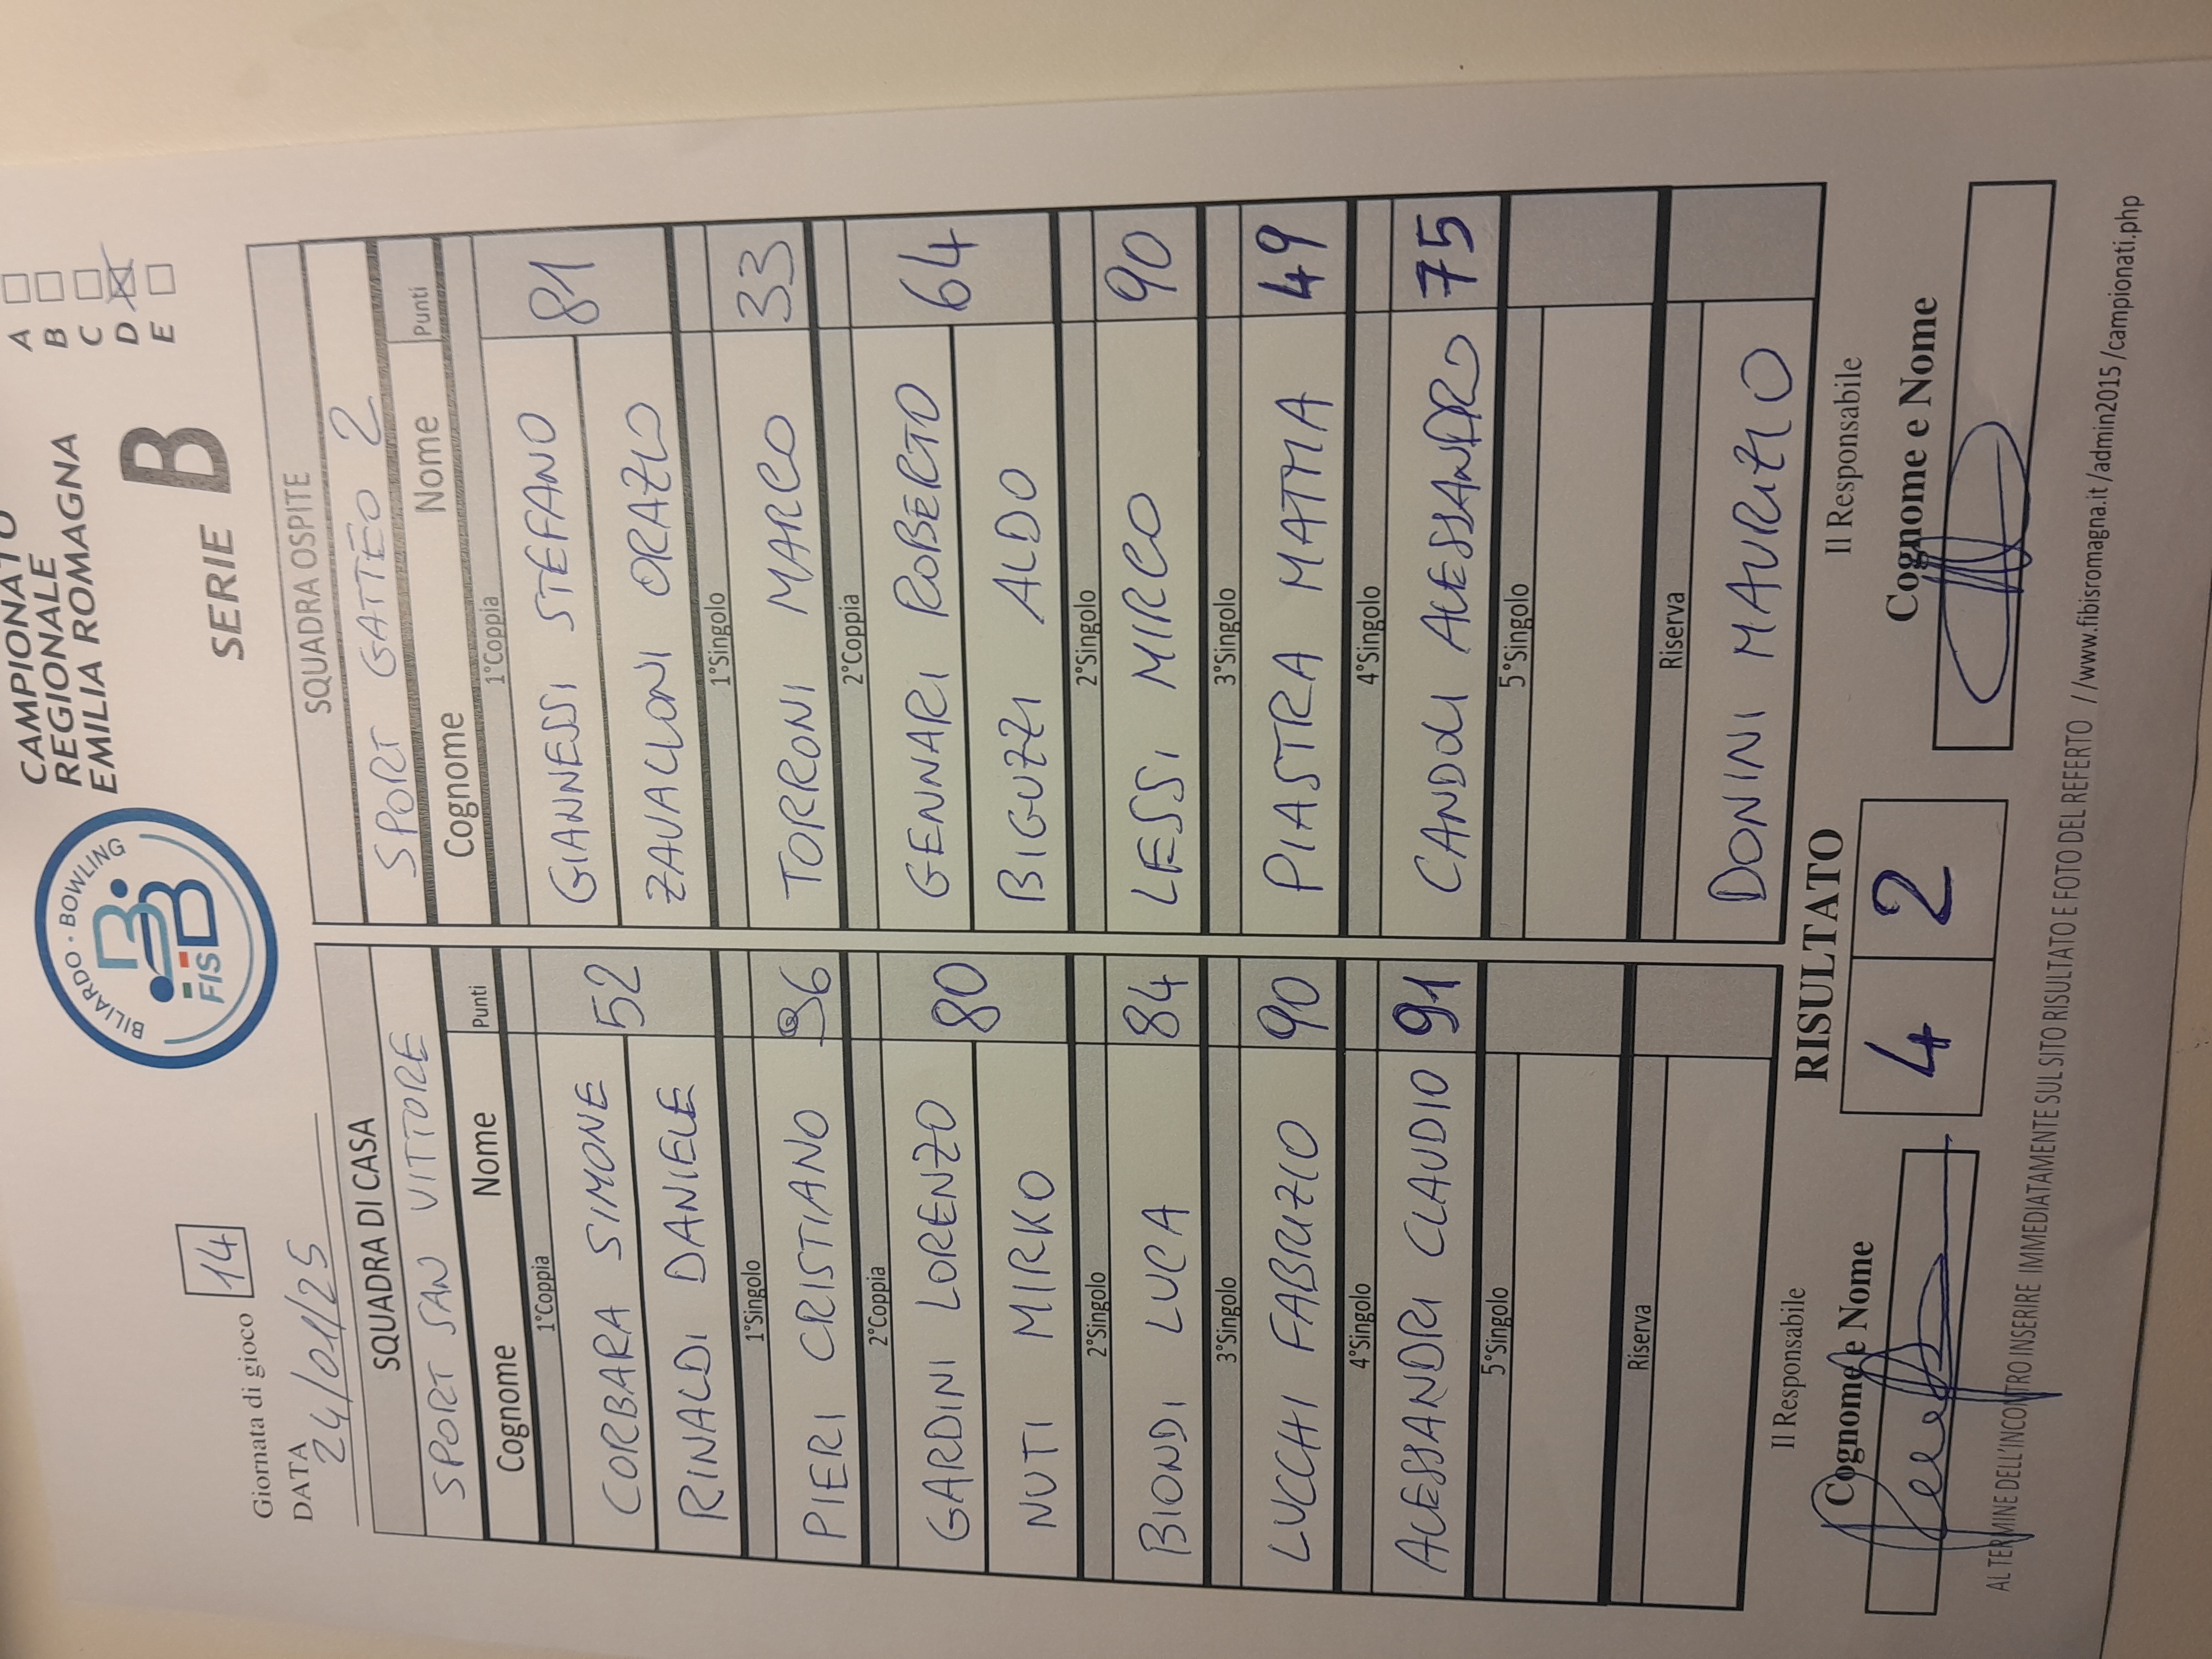 BILIARDO · BOWLING
FISBB
CAMPIONATO
REGIONALE
EMILIA ROMAGNA
SERIE B
A
B
C
D
E
Giornata di gioco 14
DATA
24/01/25
SQUADRA DI CASA SQUADRA OSPITE
SPORT SAN VITTORE SPORT GATTEO 2
Cognome Nome Punti Cognome Nome Punti
1°Coppia 1°Coppia
CORBARA SIMONE 52 GIANNESSI STEFANO 81
RINALDI DANIELE ZAVALLONI ORAZIO
1°Singolo 1°Singolo
PIERI CRISTIANO 96 TORRONI MARCO 33
2°Coppia 2°Coppia
GARDINI LORENZO 80 GENNARI ROBERTO 64
NUTI MIRKO BIGUZZI ALDO
2°Singolo 2°Singolo
BIONDI LUCA 84 LESSI MIRCO 90
3°Singolo 3°Singolo
LUCCHI FABRIZIO 90 PIASTRA MATTIA 49
4°Singolo 4°Singolo
ALESSANDRI CLAUDIO 91 CANDOLI ALESSANDRO 75
5°Singolo 5°Singolo
Riserva Riserva
DONINI MAURIZIO
Il Responsabile RISULTATO Il Responsabile
Cognome e Nome 4 2 Cognome e Nome
AL TERMINE DELL'INCONTRO INSERIRE IMMEDIATAMENTE SUL SITO RISULTATO E FOTO DEL REFERTO //www.fibisromagna.it/admin2015/campionati.php